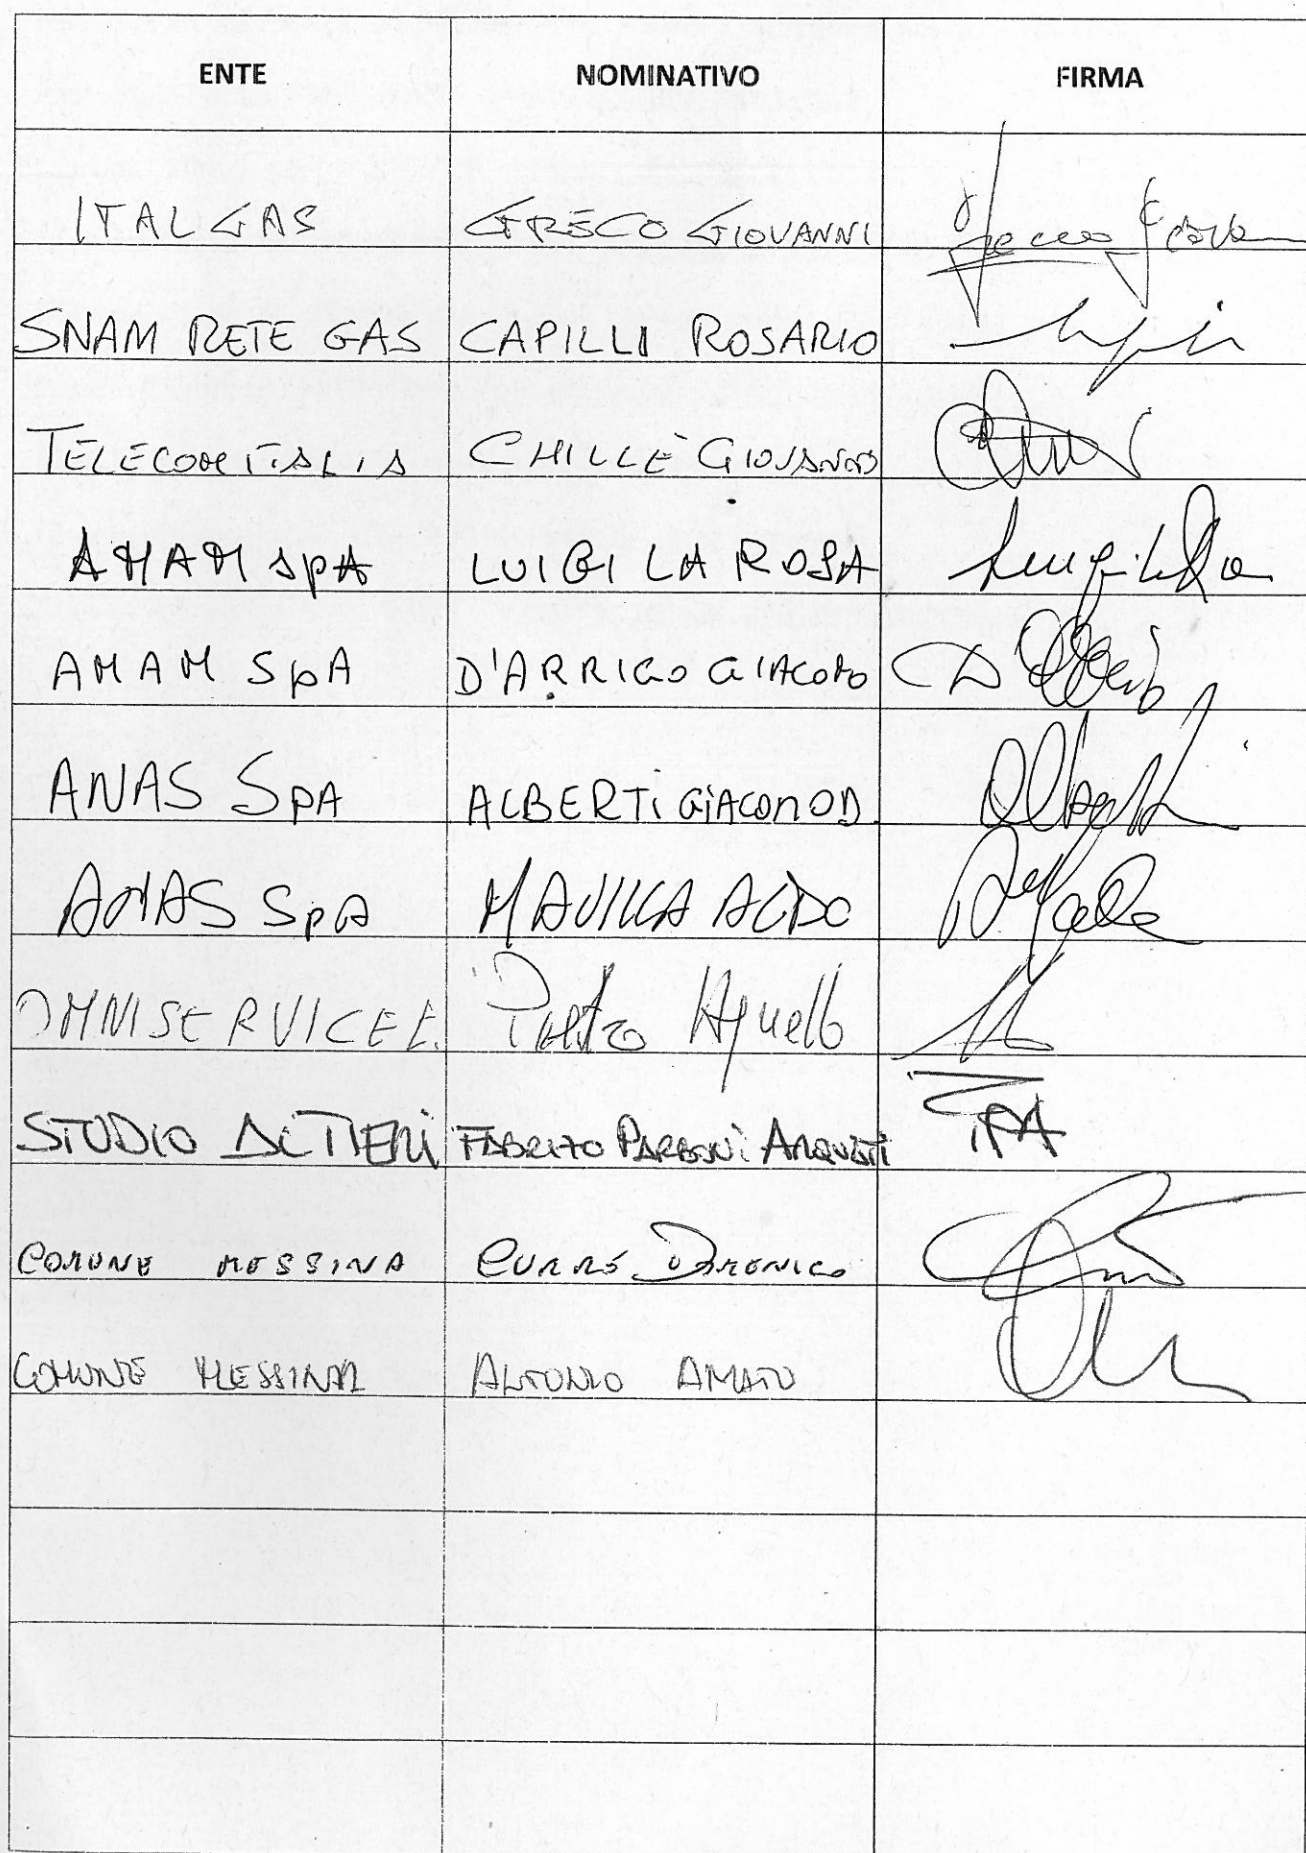 ENTE NOMINATIVO FIRMA
ITALGAS GRECO GIOVANNI
SNAM RETE GAS CAPILLI ROSARIO
TELECOM ITALIA CHILLÈ GIOVANNI
AMAM SpA LUIGI LA ROSA
AMAM SpA D'ARRIGO GIACOMO
ANAS SpA ALBERTI GiACOMO D.
ANAS SpA MAVILLA ALDO
OMNISERVICE Agnello
STUDIO ALTIERI FABRIZIO PARBONI ARQUATI
COMUNE MESSINA CURRÒ DOMENICO
COMUNE MESSINA ANTONIO AMATO